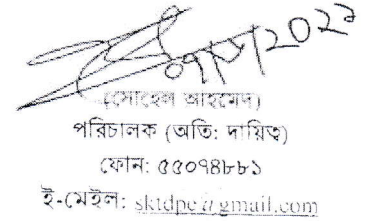 (সোহেল আহমেদ)
পরিচালক (অতি: দায়িত্ব)
ফোন: ৫৫০৭৪৮৮১
ই-মেইল: sktdpe@gmail.com